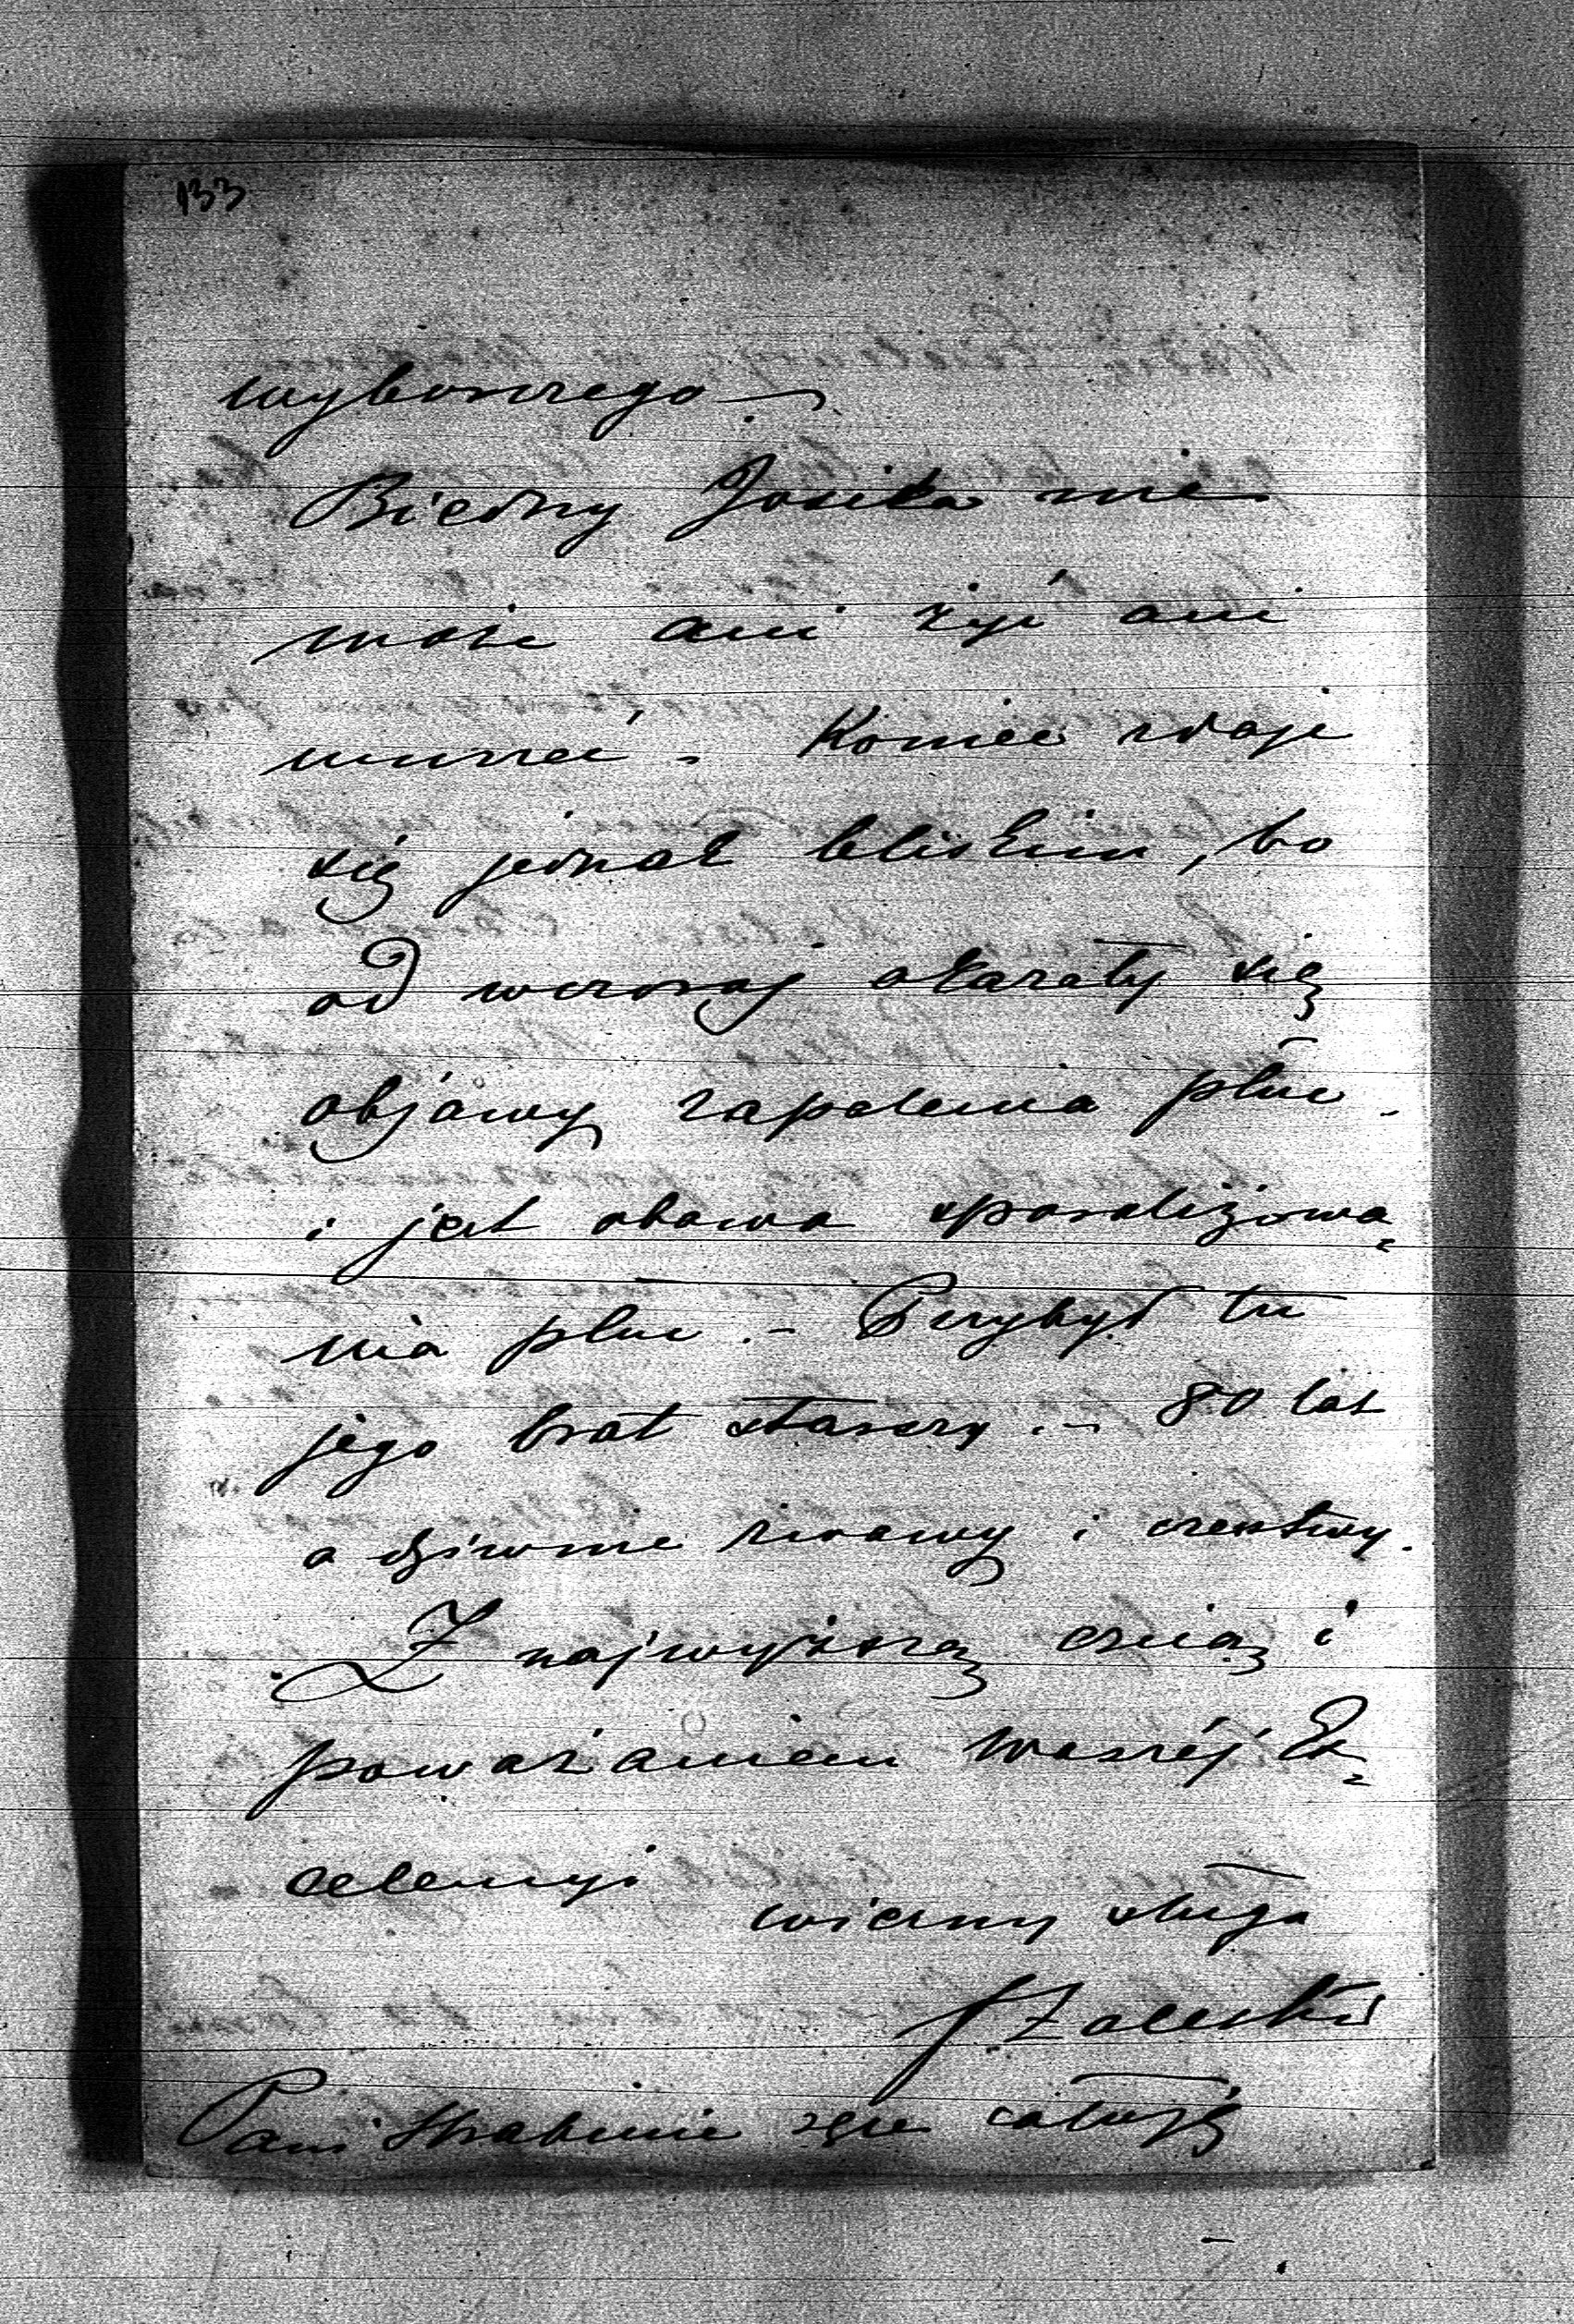 133
wyborczego. —
Biedny Josika nie
może ani żyć ani
umrzeć. Koniec zdaje
się jednak bliskim, bo
od wczoraj okazały się
objawy zapalenia płuc.
i jest obawa sparaliżowa-
nia płuc. — Przybył tu
jego brat starszy. — 80 lat
a dziwnie zdrowy i czerstwy.
Z najwyższą czcią i
poważaniem Waszéj Ex-
celencyi
wierny sługa
Zaleski
Pani Hrabinie ręce całuję